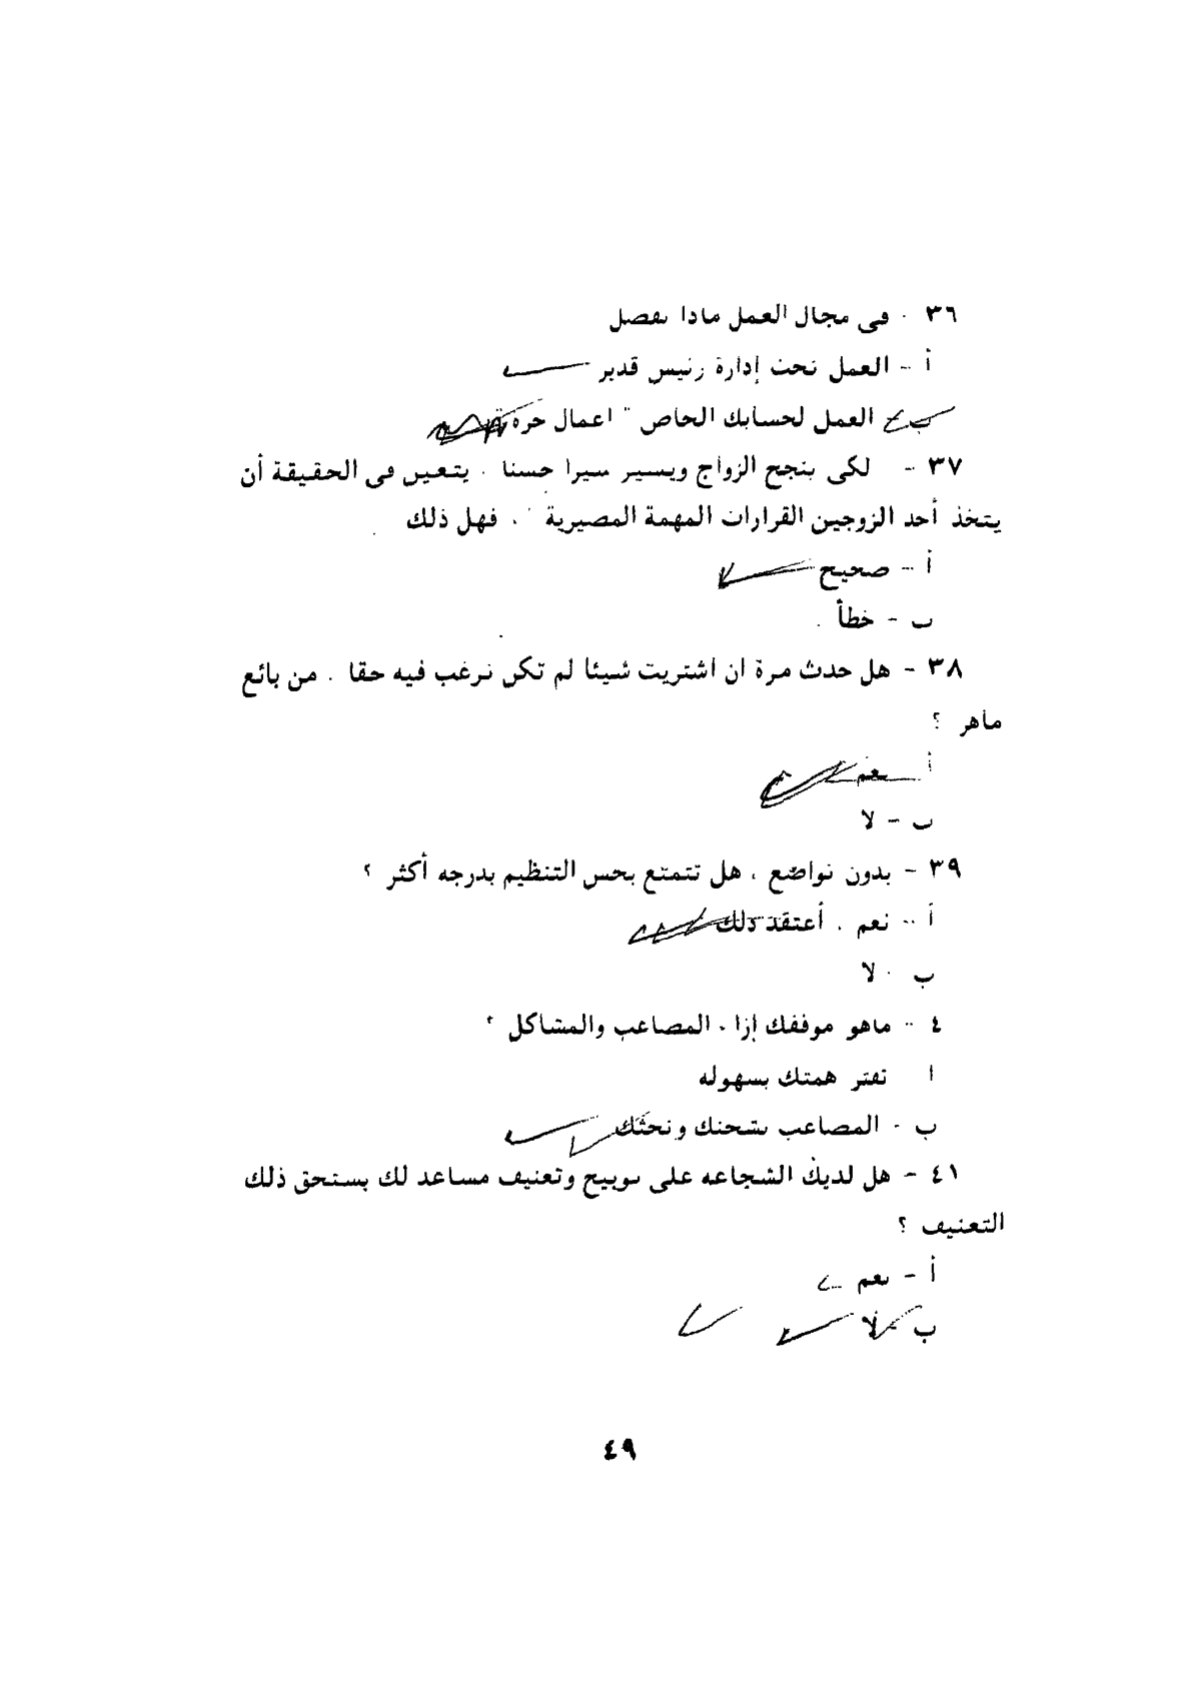 ٣٦ - فى مجال العمل ماذا تفضل
أ - العمل تحت إدارة رئيس قدير
ب - العمل لحسابك الخاص " اعمال حرة "
٣٧ - لكى ينجح الزواج ويسير سيرا حسنا ، يتعين فى الحقيقة أن
يتخذ أحد الزوجين القرارات المهمة المصيرية ، فهل ذلك
أ - صحيح
ب - خطأ .
٣٨ - هل حدث مرة ان اشتريت شيئا لم تكن ترغب فيه حقا ، من بائع
ماهر ؟
أ - نعم
ب - لا
٣٩ - بدون تواضع ، هل تتمتع بحس التنظيم بدرجه أكثر ؟
أ - نعم ، أعتقد ذلك
ب - لا
٤ - ماهو موقفك إزاء المصاعب والمشاكل ؟
ا تفتر همتك بسهوله
ب - المصاعب تشحنك وتحثك
٤١ - هل لديك الشجاعه على توبيخ وتعنيف مساعد لك يستحق ذلك
التعنيف ؟
أ - نعم
ب - لا
٤٩